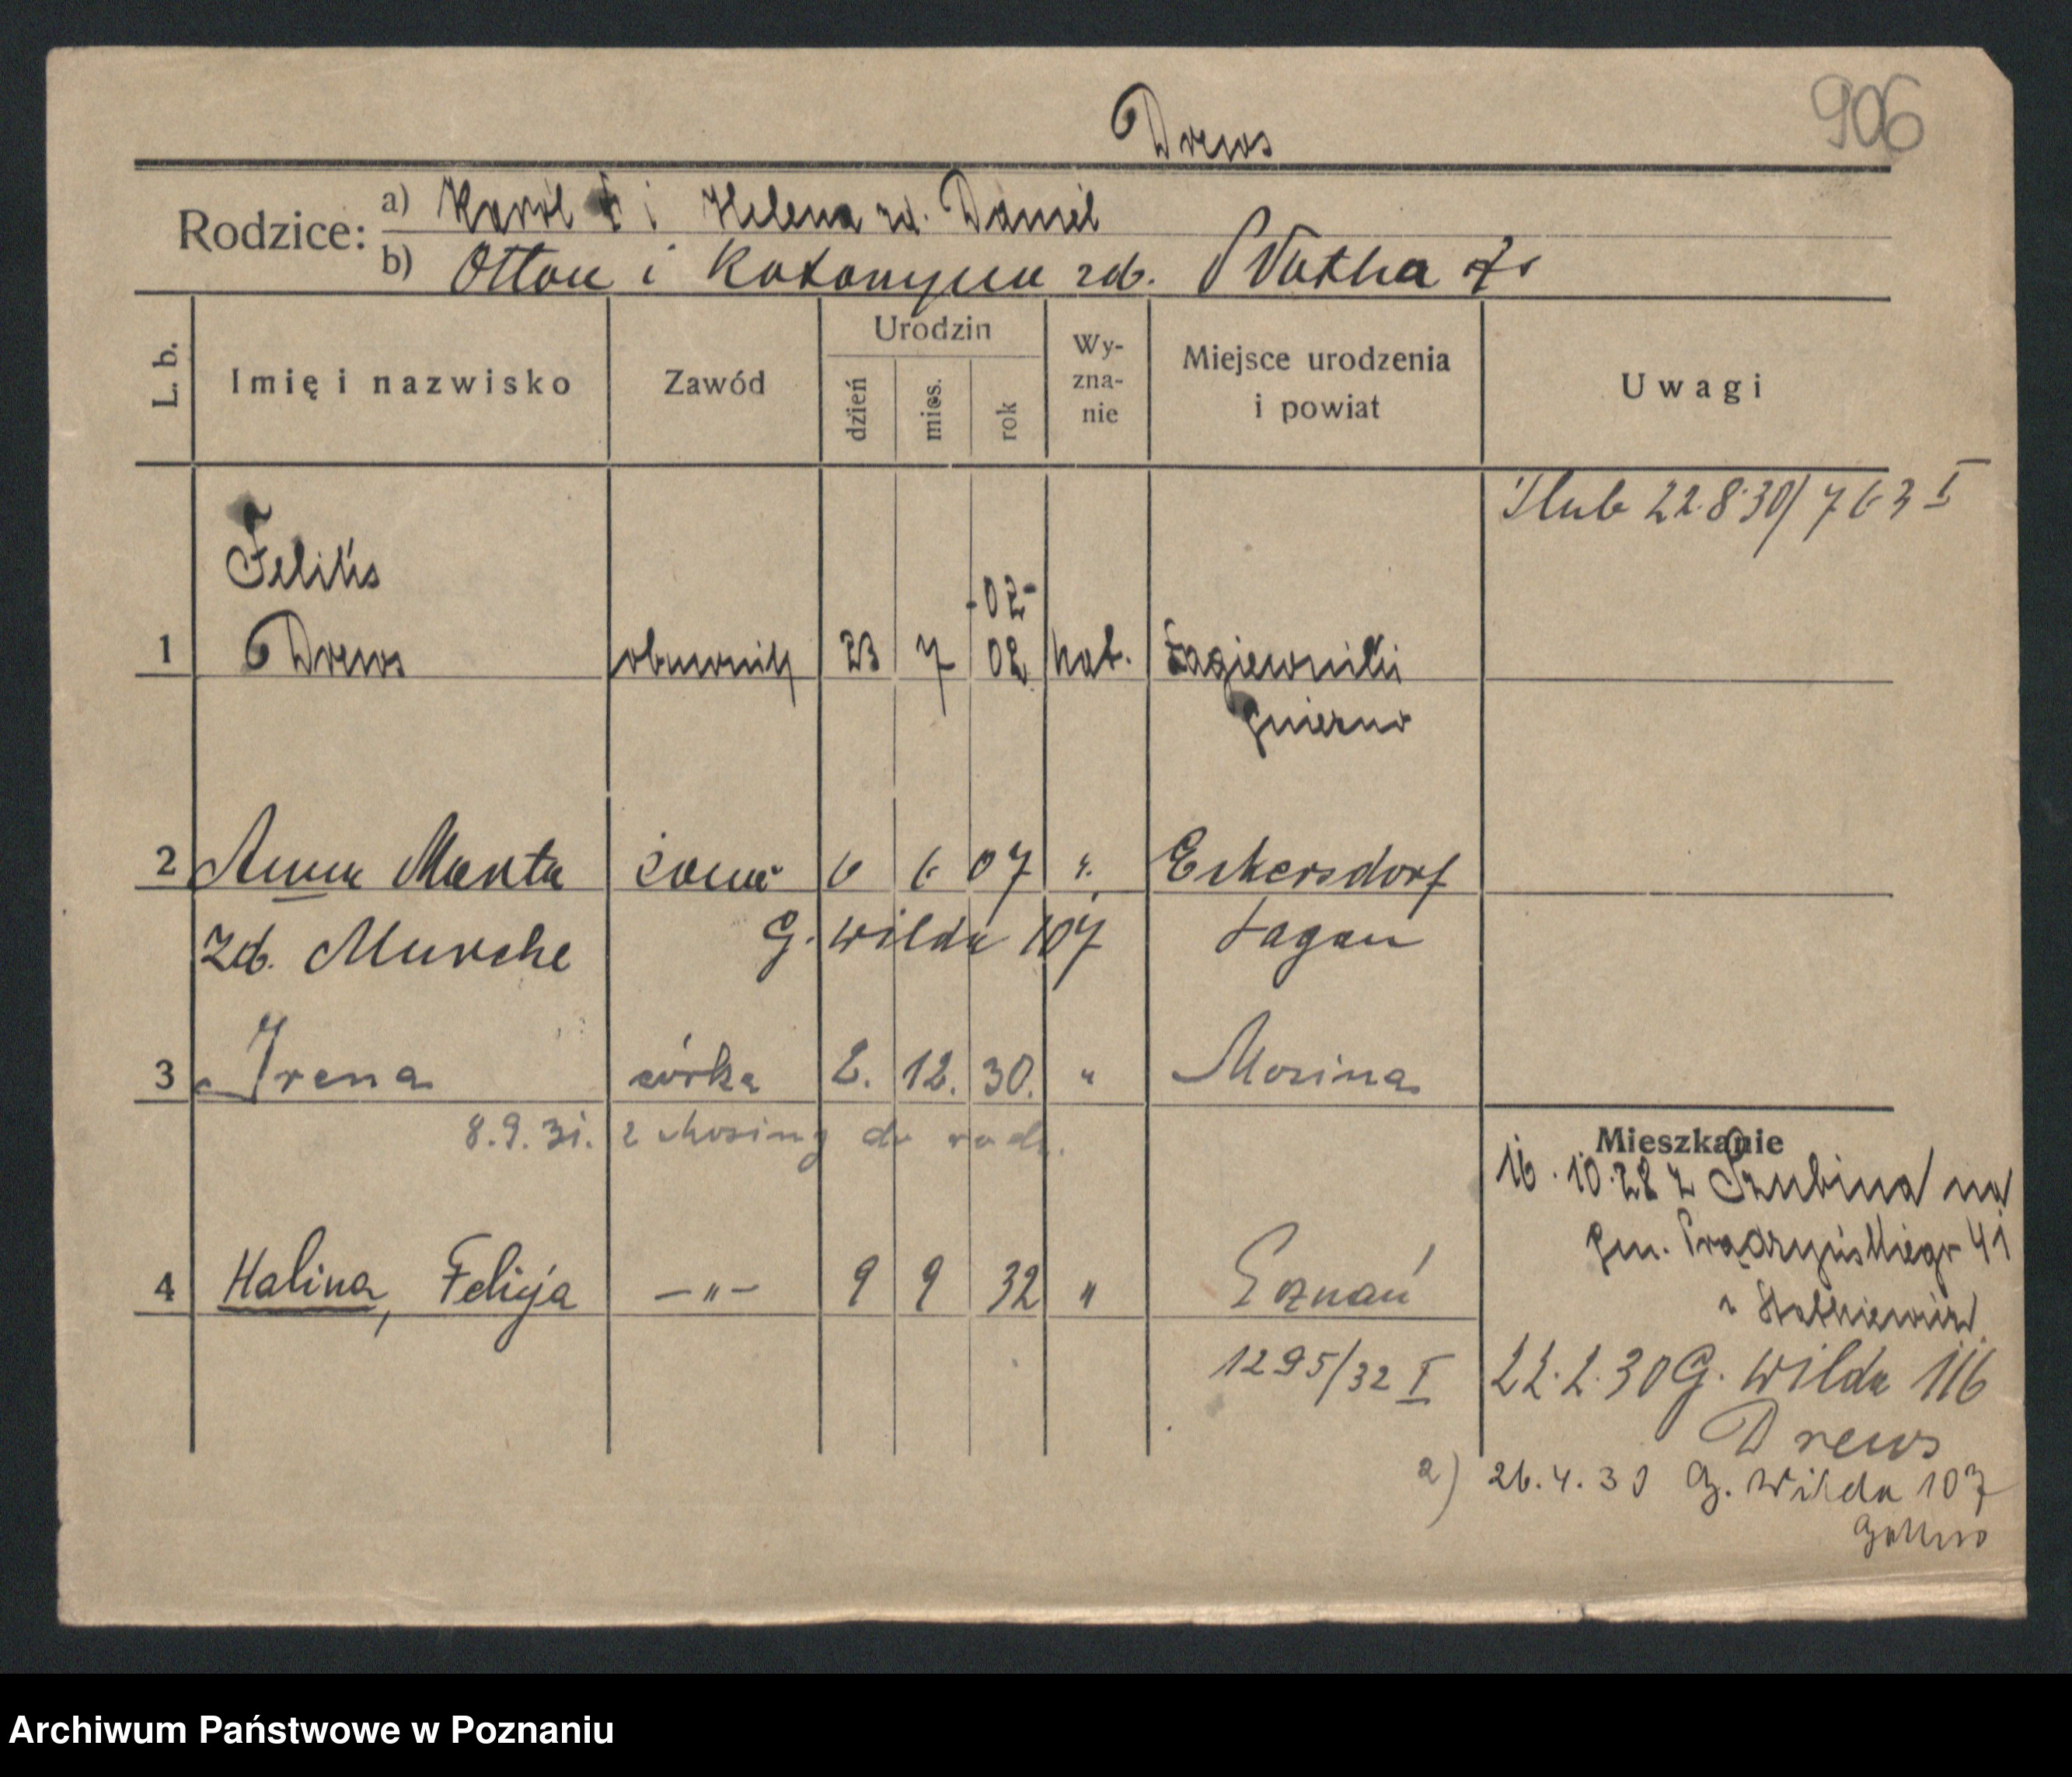 906
Drews
Rodzice: a) Karol i Helena zd. Daniel
b) Otton i Katarzyna zd.
L. b. Imię i nazwisko Zawód Urodzin dzień mies. rok Wyznanie Miejsce urodzenia i powiat Uwagi
Ślub 22.8.30/763 I
Feliks
-02-
1 Drews obuwnik 23 7 02 kat. Łagiewniki
Gniezno
2 Anna Marta żona 6 6 07 " Eckersdorf
zd. Munche G. Wilda 107 Żagań
3 Irena córka 2. 12. 30. " Mosina
8.9.31. z Mosiny do rodz.
4 Halina, Felicja —"— 9 9 32 " Poznań
1295/32 I
Mieszkanie
16.10.28 z Szubina na
Gen. Prądzyńskiego 41
22.2.30 G. Wilda 116
Drews
a) 26.4.30 G. Wilda 107
Archiwum Państwowe w Poznaniu